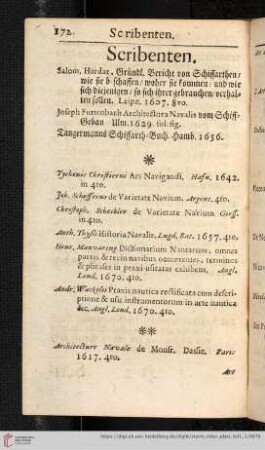 172. Scribenten.
Scribenten.
Salom. Hardar. Gründl. Bericht von Schiffarthen/
wie sie b schaffen/ woher sie kommen/ und wie
sich diejenigen/ so sich ihrer gebrauchen verhal-
ten sollen. Leipz. 1607. 8vo.
Joseph Furtenbach Architectura Navalis vom Schiff-
Gebau Ulm. 1629. fol. fig.
Tangermanns Schiffarth-Buch Hamb. 1656.
*
Tychonis Chrostierni Ars Navigandi, Hafn. 1642.
in 4to.
Joh. Schefferus de Varietate Navium. Argent. 4to.
Christoph. Scheibler de Varietate Navium Giess.
in 4to.
Anth. Thysii Historia Navalis, Lugd. Bat. 1657. 4to.
Henr. Manwaring Dictionarium Nautarum, omnes
partes & res in navibus occurrentes, terminos
& plurales in praxi usitatas exhibens, Angl.
Lond. 1670. 4to.
Andr. Wackelis Praxis nautica rectificata cum descri-
ptione & usu instrumentorum in arte nautica
&c. Angl. Lond. 1670. 4to.
**
Architecture Navale de Mons. Dassie. Paris
1617. 4to.